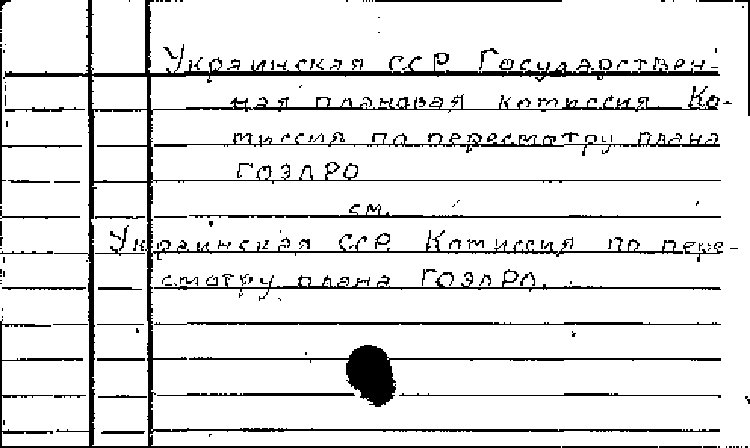 Украинская ССР. Государствен-
ная плановая комиссия. Ко-
миссия по пересмотру плана
ГОЭЛРО
см.
Украинская ССР. Комиссия по пере-
смотру плана ГОЭЛРО.